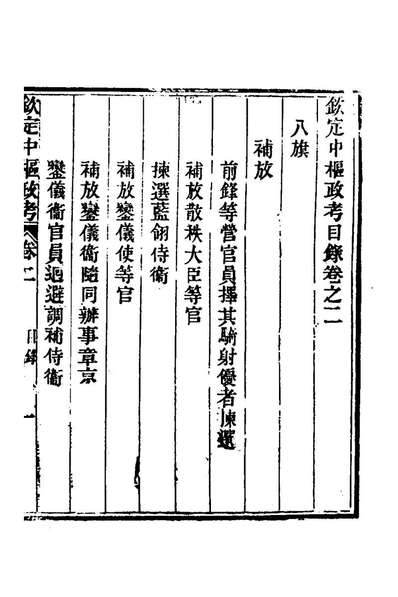 欽定中樞政考目錄卷之二
八旗
補放
前鋒等營官員擇其騎射優者揀選
補放散秩大臣等官
揀選藍翎侍衛
補放鑾儀使等官
補放鑾儀衛隨同辦事章京
鑾儀衛官員迴避調補侍衛
欽定中樞政考 卷二 目錄 一